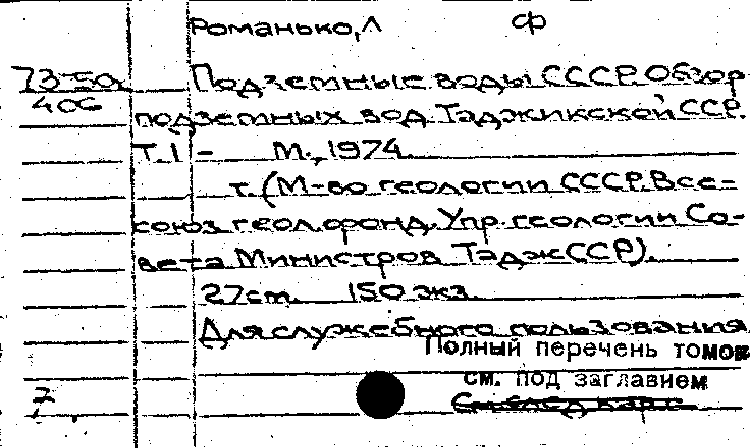 Романько, Л ф
73-50
406
Подземные воды СССР. Обзор
подземных вод Таджикской ССР.
Т. 1 - М., 1974.
т. (М-во геологии СССР. Все-
союз. геол. фонд. Упр. геологии Со-
вета Министров ТаджССР).
27см. 150 экз.
Для служебного пользования
Полный перечень томов
см. под заглавием
См след карт
2